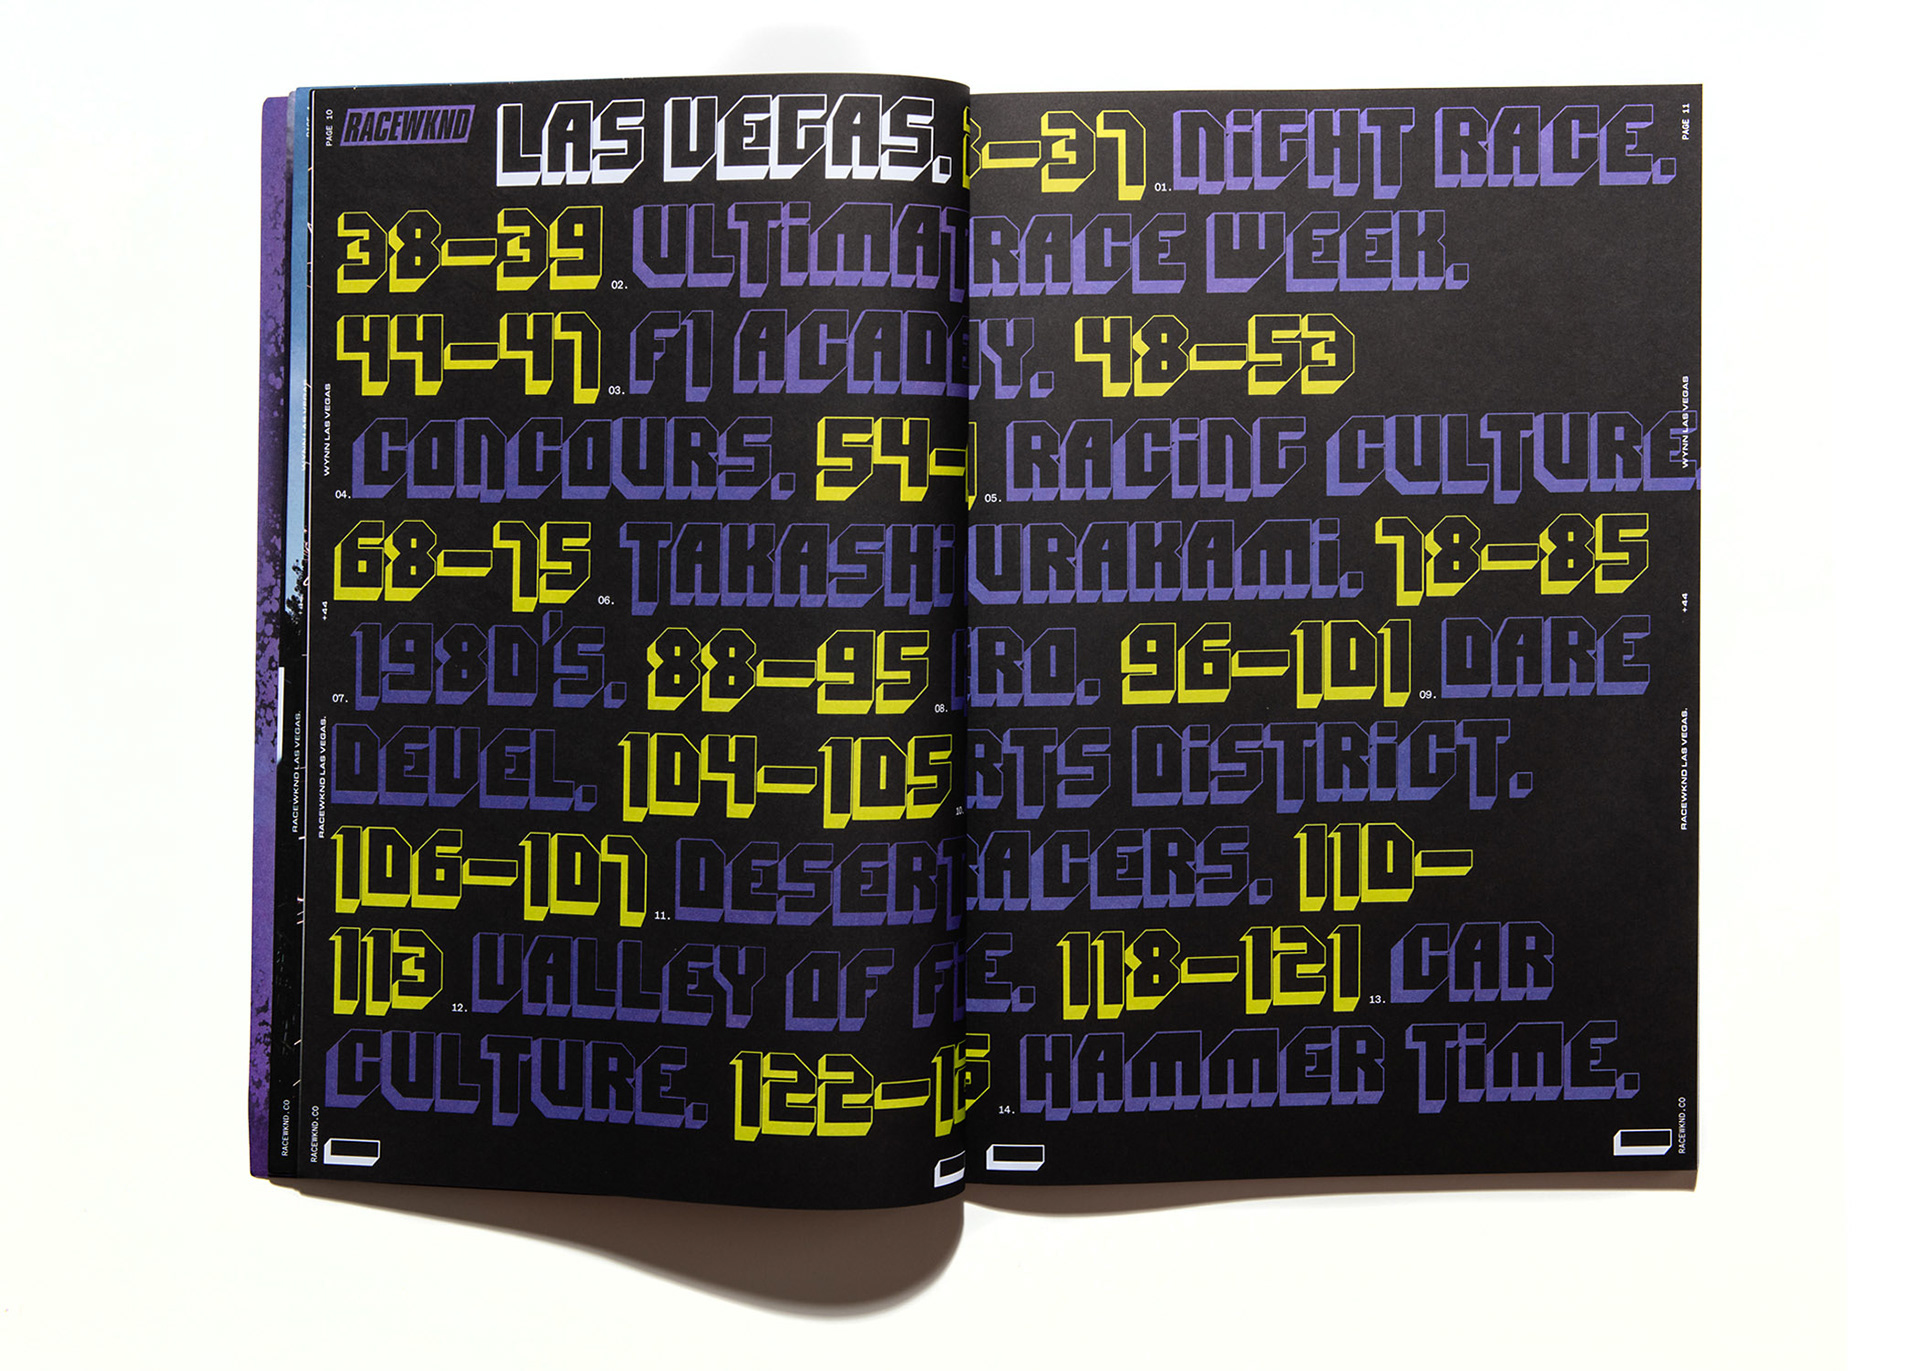 PAGE 10
RACEWKND
LAS VEGAS. –37 01. NiGHT RACE.
PAGE 11
38–39 02. ULTiMAT RACE WEEK.
44–47 03. F1 ACADE Y. 48–53
04. CONCOURS. 54– 05. RACiNG CULTURE.
68–75 06. TAKASHi URAKAMi. 78–85
07. 1980'S. 88–95 08. RO. 96–101 09. DARE
DEVEL. 104–105 10. RTS DiSTRiCT.
106–107 11. DESERT RACERS. 110–
113 12. VALLEY OF F E. 118–121 13. CAR
CULTURE. 122– 14. HAMMER TiME.
WYNN LAS VEGAS
+44
RACEWKND LAS VEGAS.
RACEWKND.CO
WYNN LAS VEGAS
+44
RACEWKND LAS VEGAS.
RACEWKND.CO
RACEWKND LAS VEGAS.
RACEWKND.CO